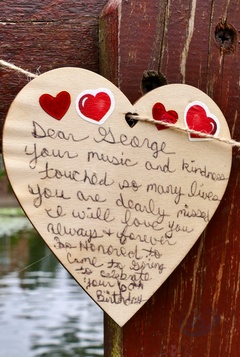 Dear George
Your music and kindness
touched so many lives
You are dearly missed
& will love you
always + forever
So Honored to
Come to Goring
to celebrate
your 60th
Birthday